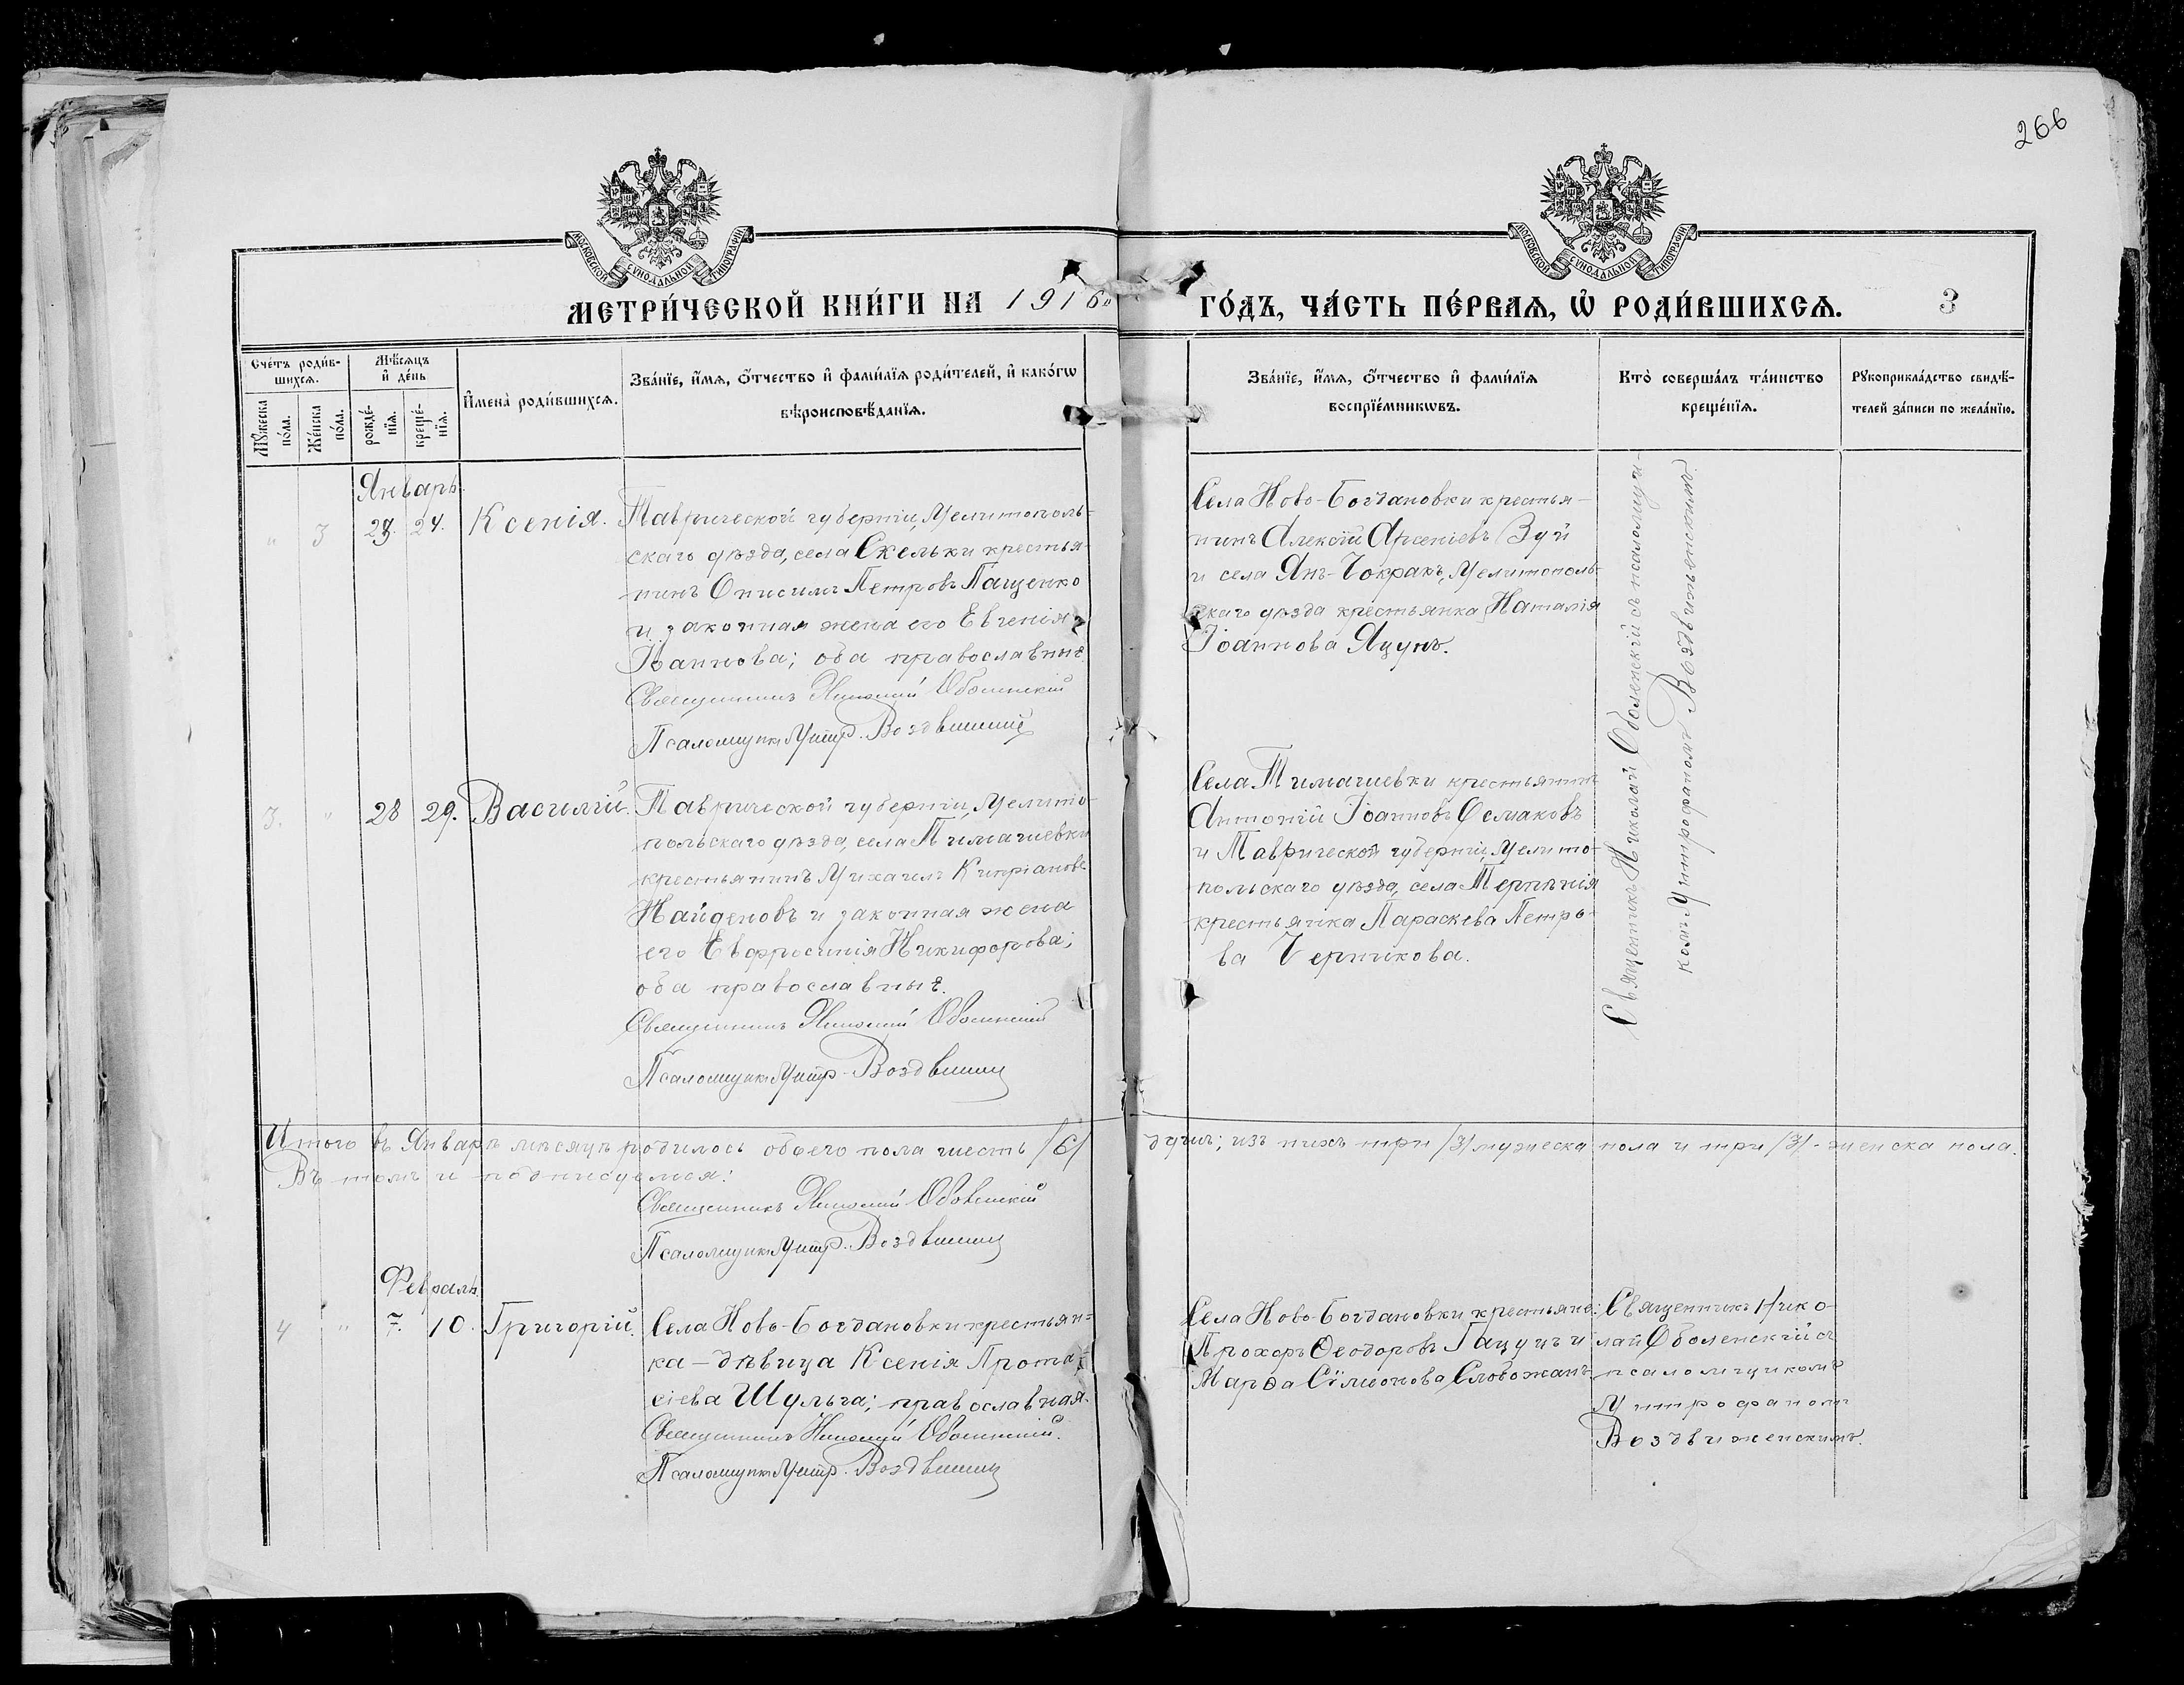 266
МОСКОВСКОЙ СѴНОДАЛЬНОЙ ТИПОГРАФІИ
МОСКОВСКОЙ СѴНОДАЛЬНОЙ ТИПОГРАФІИ
МЕТРИ́ЧЕСКОЙ КНИ́ГИ НА 1916
ГО́ДЪ, ЧА́СТЬ ПЕ́РВАЯ, Ѡ҆ РОДИ́ВШИХСЯ. 3
Сче́тъ роди́в-
шихсѧ.
Мꙋ́жеска
по́ла.
Же́нска
по́ла.
Мѣ́сѧцъ
и҆ де́нь
рожде́-
нїѧ.
креще́-
нїѧ.
И҆мена̀ роди́вшихсѧ.
Зва́нїе, и҆́мѧ, ѻ҆́тчество и҆ фами́лїѧ роди́телей, и҆ како́гѡ
вѣроисповѣ́данїѧ.
Зва́нїе, и҆́мѧ, ѻ҆́тчество и҆ фами́лїѧ
воспрїе́мникѡвъ.
Кто̀ соверша́лъ та́инство
креще́нїѧ.
Рꙋкоприкла́дство свидѣ́-
телей за́писи по жела́нїю.
Январь.
" 3 23. 24. Ксенія.
Таврической губерніи, Мелитополь-
скаго уѣзда, села Скельки крестья-
нинъ Онисимъ Петровъ Пащенко
и законная жена его Евгенія
Іоаннова; оба православные.
Священникъ Николай Оболенскій
Псаломщикъ Митр. Воздвиженскій
Села Ново-Богдановки крестья-
нинъ Алексій Арсеніевъ Зуй
и села Янъ-Чокракъ, Мелитополь-
скаго уѣзда крестьянка Наталія
Іоаннова Яцунъ.
Священникъ Николай Оболенскій съ псаломщи-
комъ Митрофаномъ Воздвиженскимъ.
3. " 28 29. Василій.
Таврической губерніи, Мелито-
польскаго уѣзда, села Тимашевки
крестьянинъ Михаилъ Кипріановъ
Найденовъ и законная жена
его Евфросинія Никифорова;
оба православные.
Священникъ Николай Оболенскій
Псаломщикъ Митр. Воздвиженскій
Села Тимашевки крестьянинъ
Антоній Іоанновъ Осмаковъ
и Таврической губерніи, Мелито-
польскаго уѣзда, села Терпѣнія
крестьянка Параскева Петро-
ва Черникова.
Итого въ Январѣ мѣсяцѣ родилось обоего пола шесть /6/ душъ; изъ нихъ три /3/ мужеска пола и три /3/ - женска пола.
Въ томъ и подписуемся:
Священникъ Николай Оболенскій
Псаломщикъ Митр. Воздвиженскій
Февраль.
4 " 7. 10. Григорій.
Села Ново-Богдановки крестьян-
ка - дѣвица Ксенія Прота-
сіева Шульга; православная.
Священникъ Николай Оболенскій.
Псаломщикъ Митр. Воздвиженскій
Села Ново-Богдановки крестьяне:
Прохоръ Ѳеодоровъ Гацуцъ и
Марѳа Сѵмеонова Слобожанъ
Священникъ Нико-
лай Оболенскій съ
псаломщикомъ
Митрофаномъ
Воздвиженскимъ.